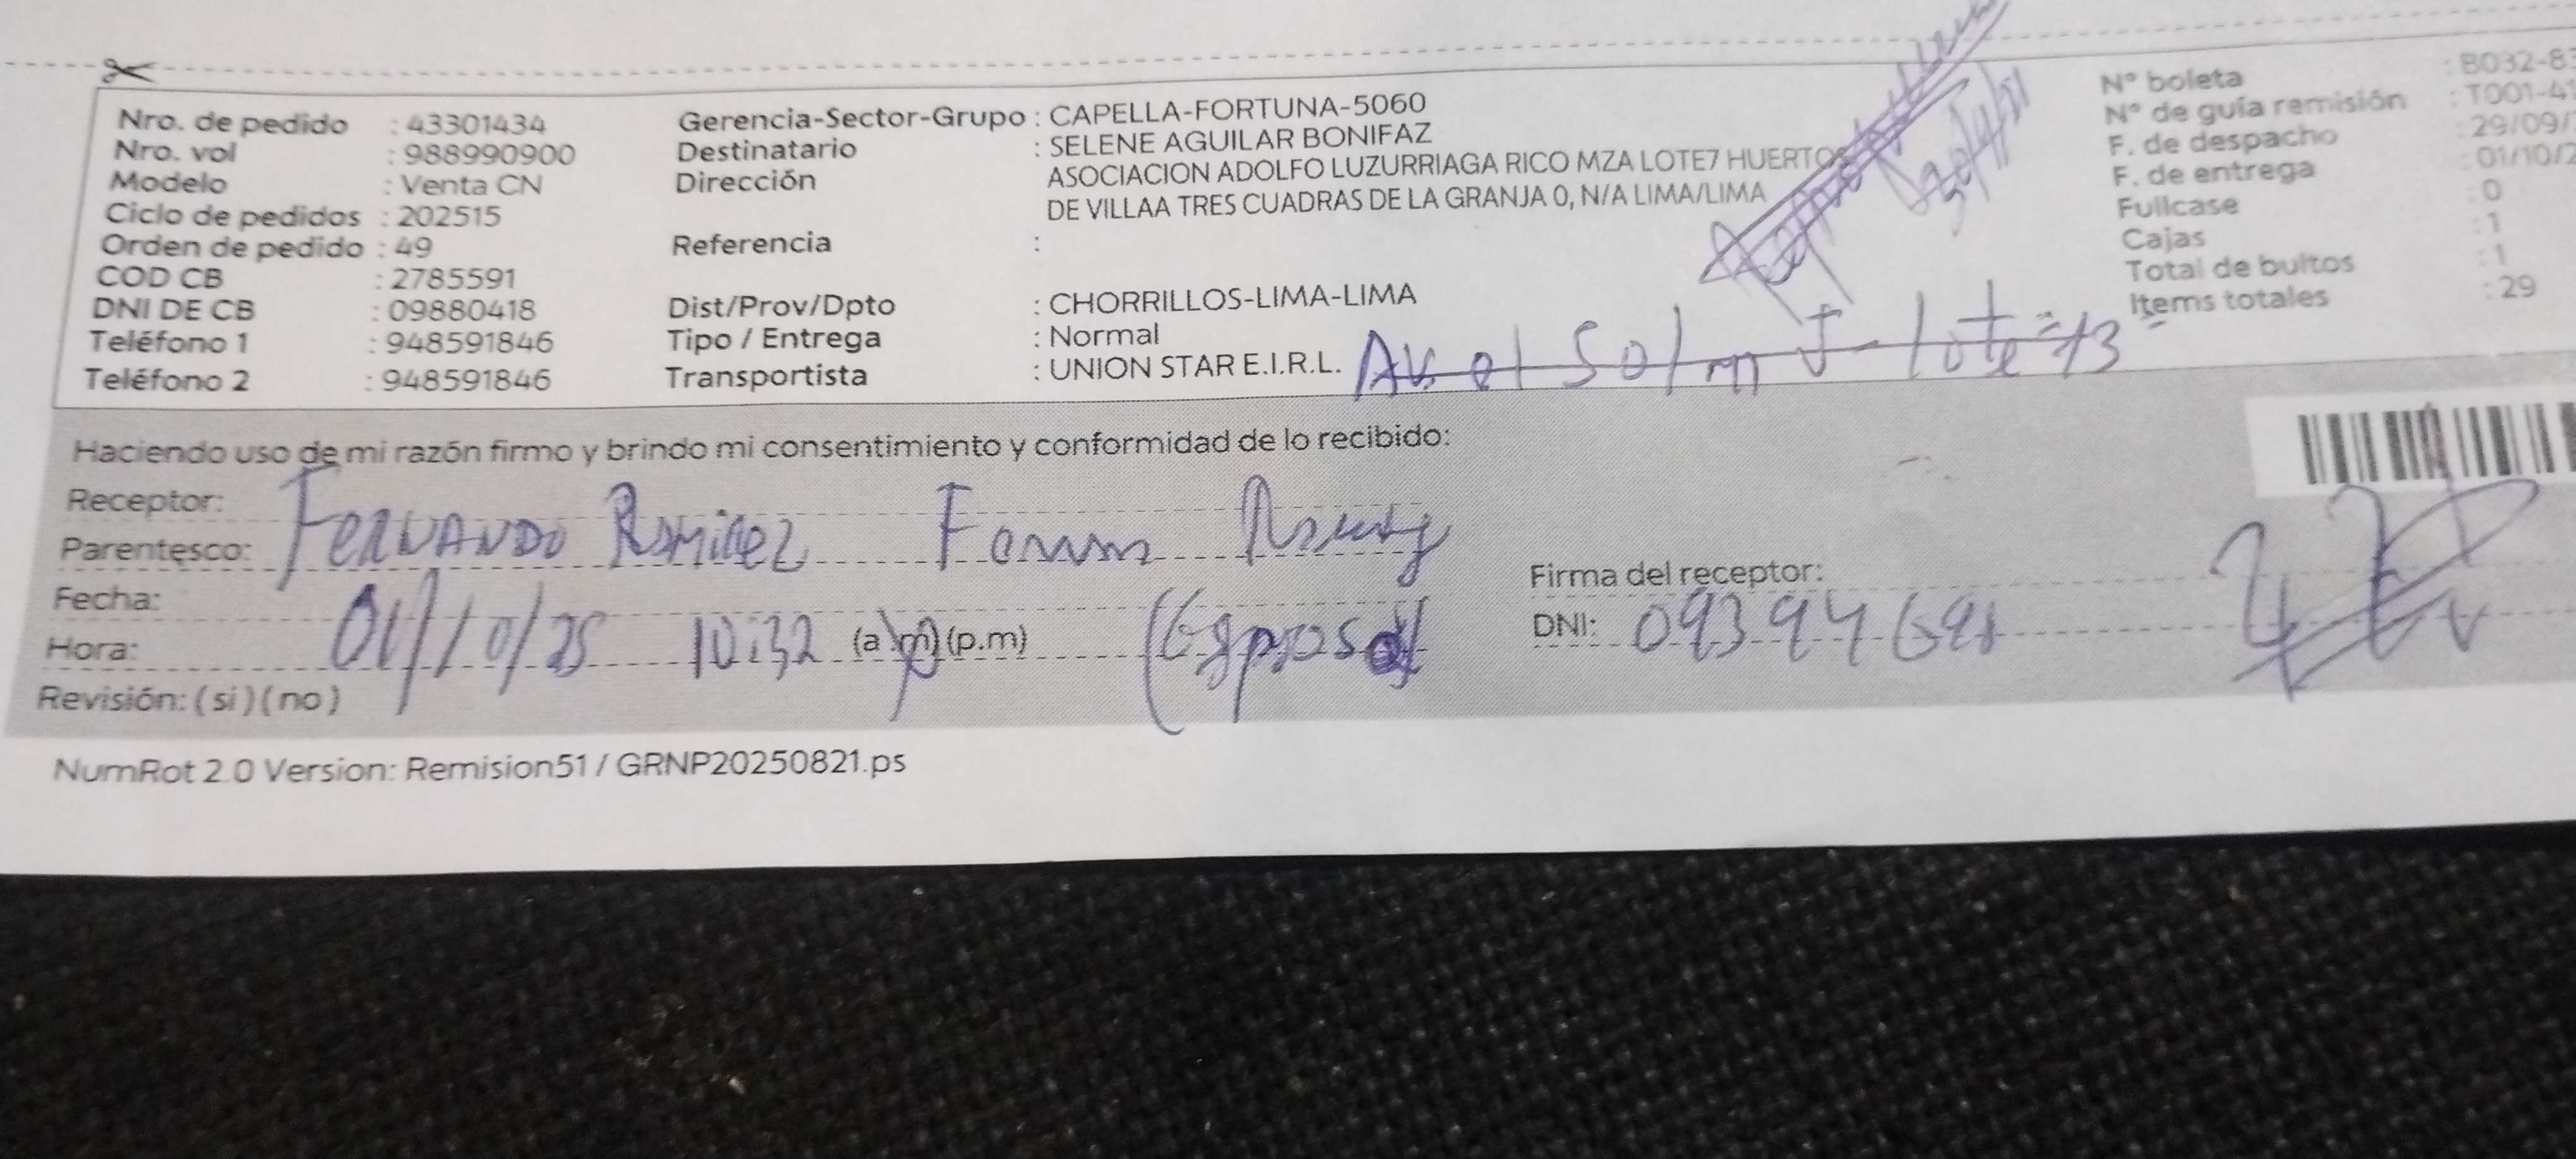 Nro. de pedido : 43301434
Nro. vol : 988990900
Modelo : Venta CN
Ciclo de pedidos : 202515
Orden de pedido : 49
COD CB : 2785591
DNI DE CB : 09880418
Teléfono 1 : 948591846
Teléfono 2 : 948591846
Gerencia-Sector-Grupo : CAPELLA-FORTUNA-5060
Destinatario : SELENE AGUILAR BONIFAZ
Dirección : ASOCIACION ADOLFO LUZURRIAGA RICO MZA LOTE7 HUERTOS
DE VILLAA TRES CUADRAS DE LA GRANJA 0, N/A LIMA/LIMA
Referencia :
Dist/Prov/Dpto : CHORRILLOS-LIMA-LIMA
Tipo / Entrega : Normal
Transportista : UNION STAR E.I.R.L.
Av. el Sol m J - lote 13
N° boleta : B032-83
N° de guía remisión : T001-41
F. de despacho : 29/09/
F. de entrega : 01/10/2
Fullcase : 0
Cajas : 1
Total de bultos : 1
Items totales : 29
Haciendo uso de mi razón firmo y brindo mi consentimiento y conformidad de lo recibido:
Receptor:
Parentesco: FERNANDO RAMIREZ
Fecha: 01/10/25
Hora: 10:32 (a.m) (p.m) (Esposo)
Revisión: (si) (no)
Firma del receptor:
DNI:
NumRot 2.0 Version: Remision51 / GRNP20250821.ps